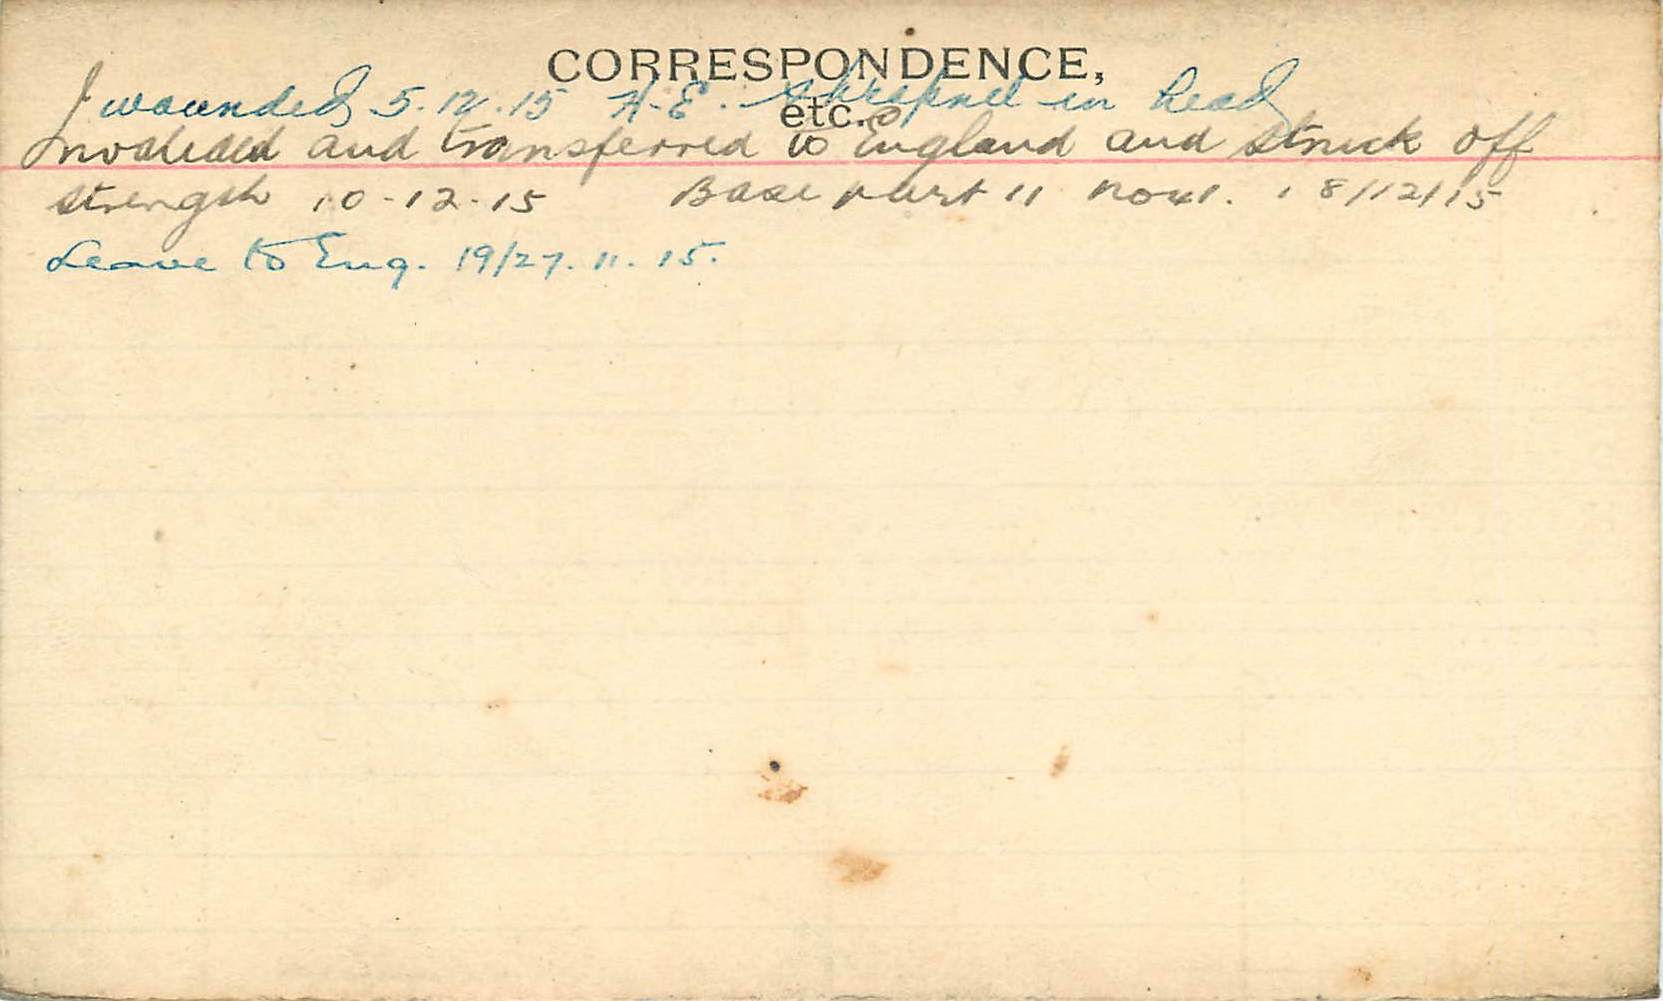 CORRESPONDENCE,
etc.
wounded 5.12.15 H.E. Shrapnel in head
Invalided and transferred to England and struck off
strength 10-12-15 Base part 11 18/12/15
Leave to Eng. 19/27.11.15.